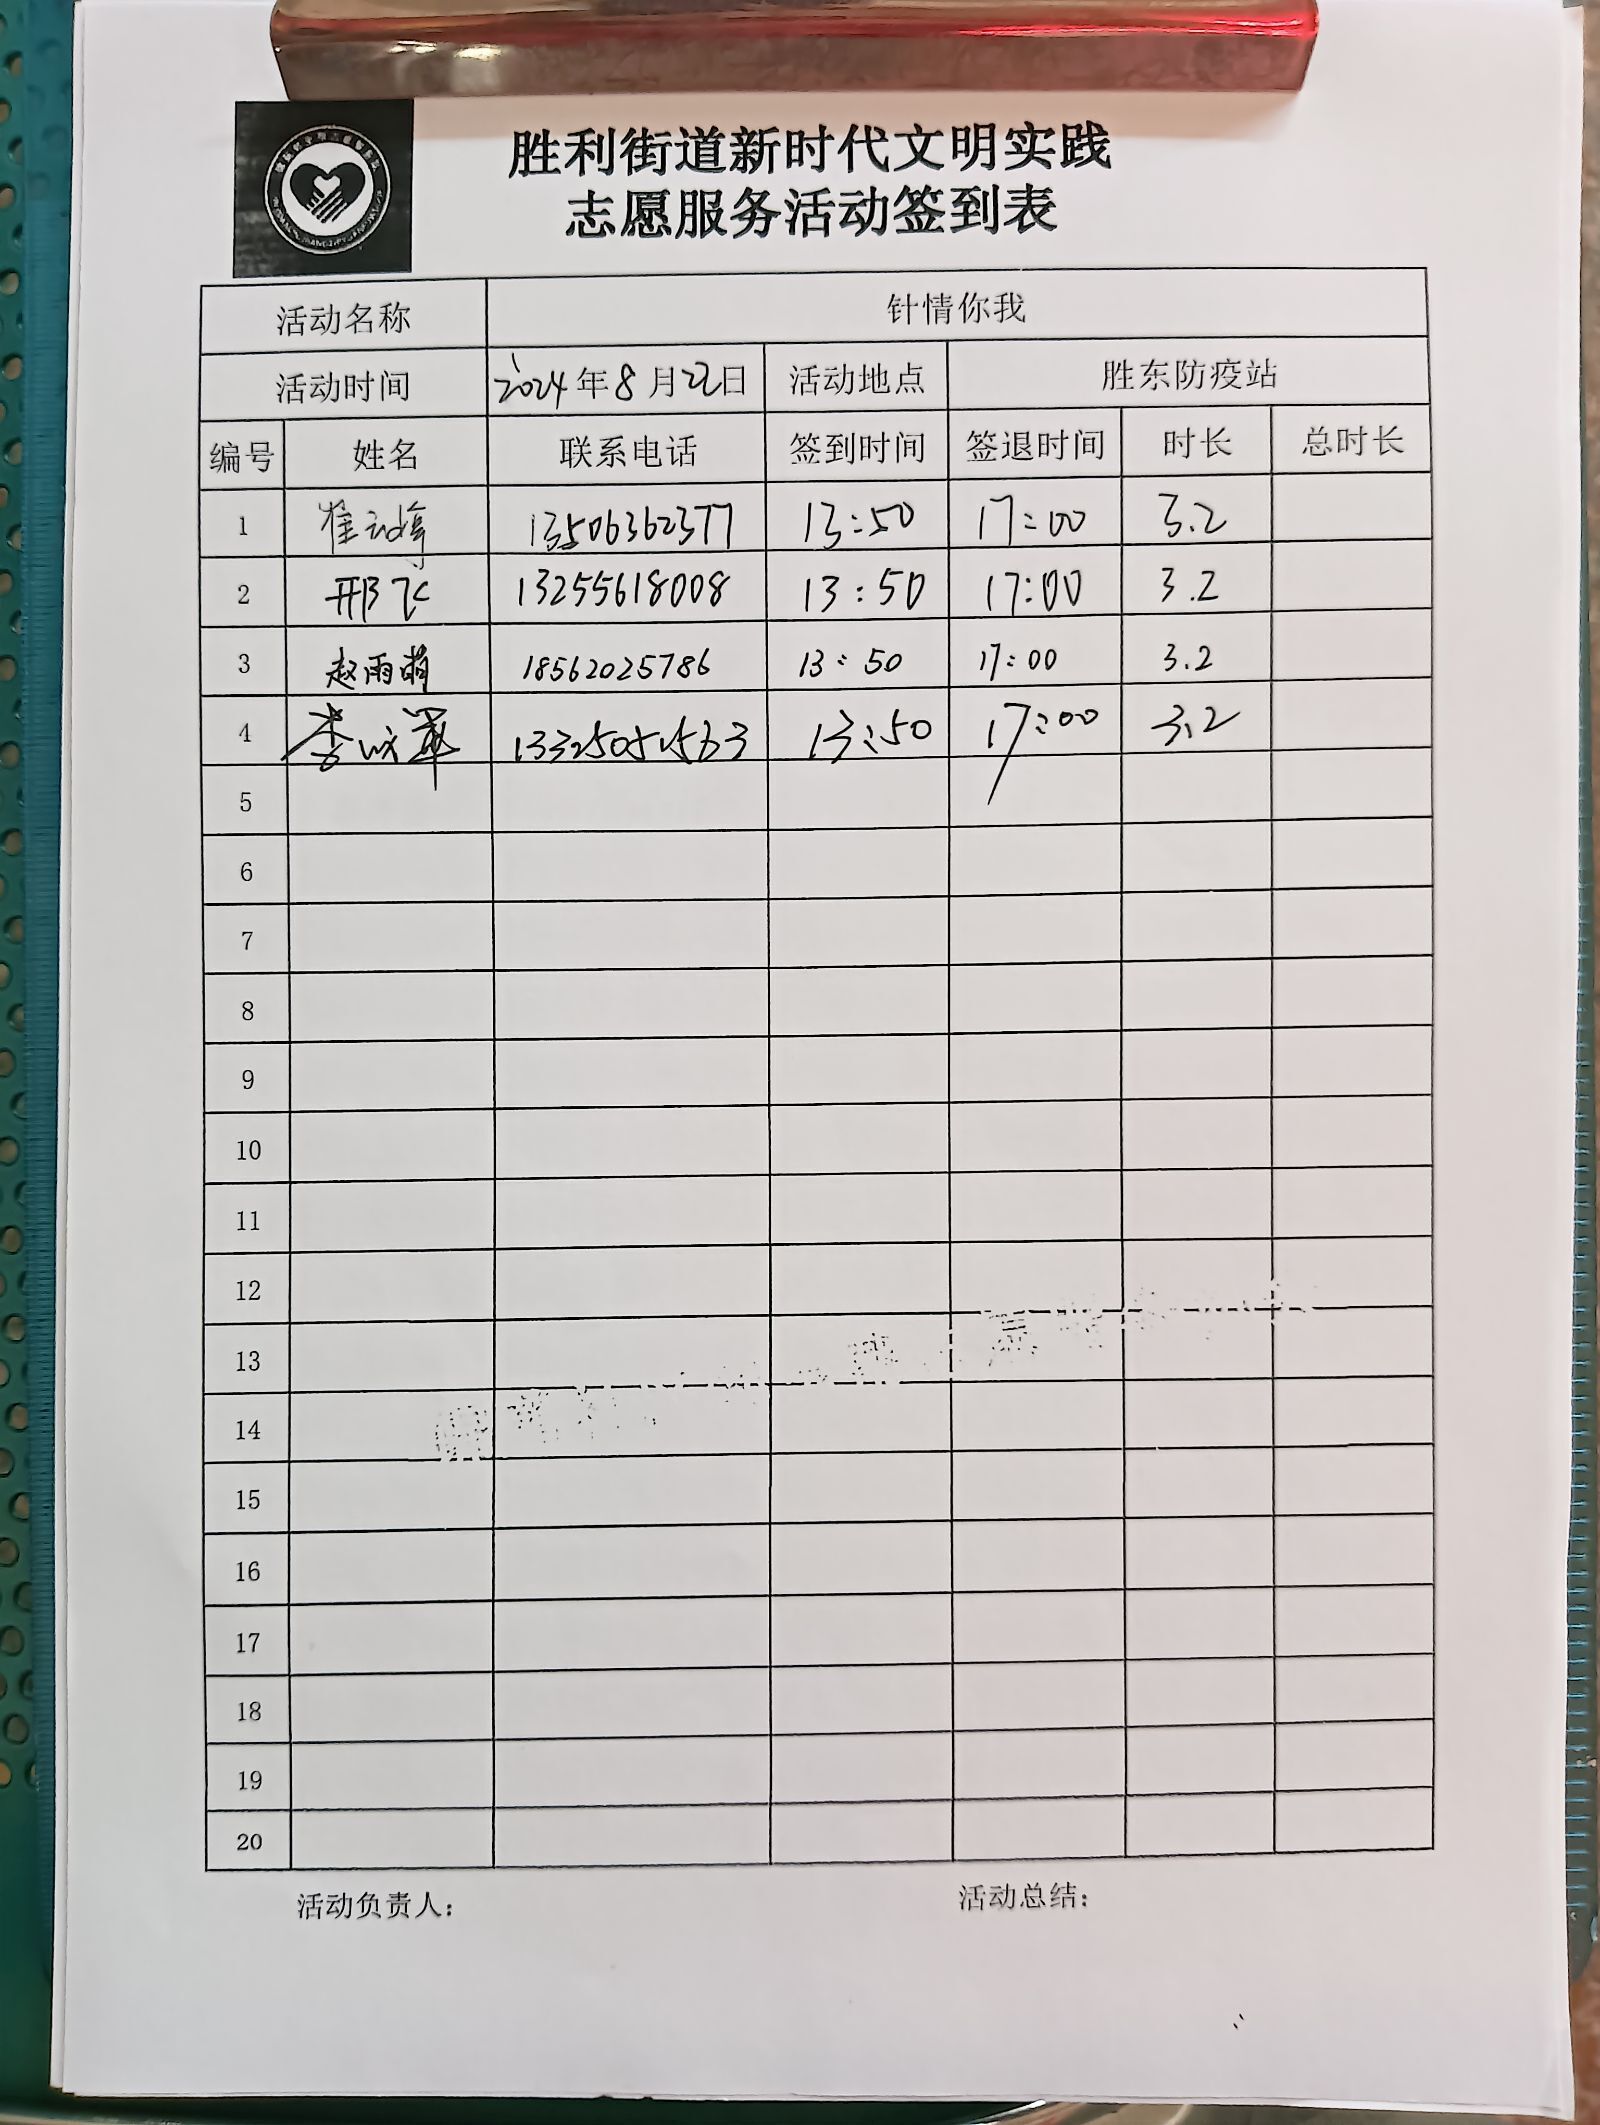 胜利街道新时代文明实践
志愿服务活动签到表
活动名称 针情你我
活动时间 2024年8月22日 活动地点 胜东防疫站
编号 姓名 联系电话 签到时间 签退时间 时长 总时长
1 崔 13506362377 13:50 17:00 3.2
2 邢飞 13255618008 13:50 17:00 3.2
3 赵雨萌 18562025786 13:50 17:00 3.2
4 李 13:50 17:00 3.2
5
6
7
8
9
10
11
12
13
14
15
16
17
18
19
20
活动负责人: 活动总结: